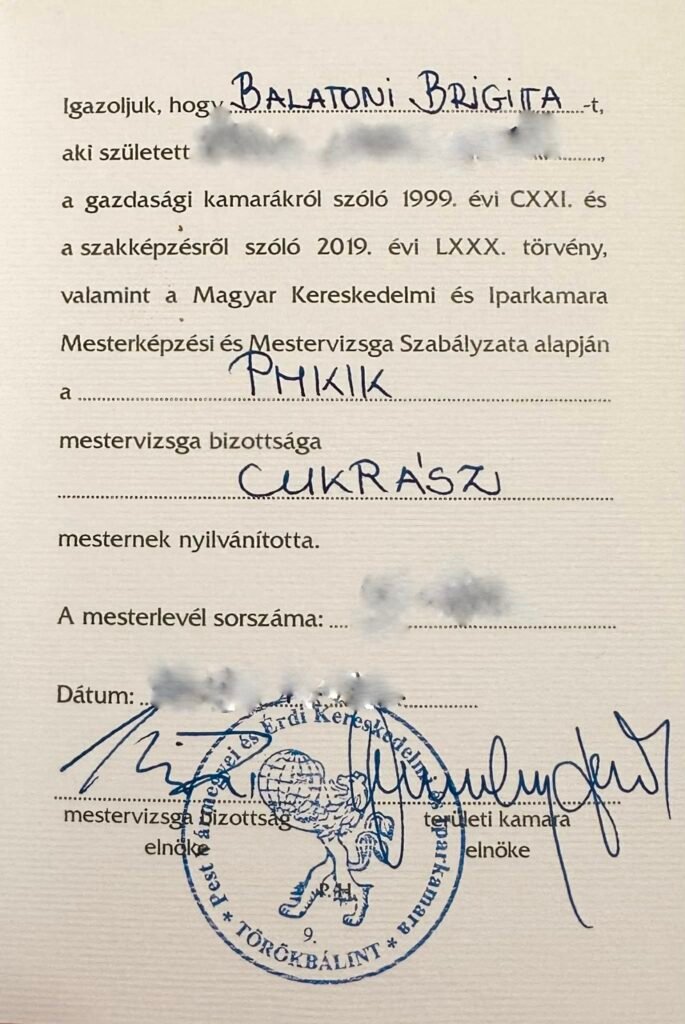 Igazoljuk, hogy BALATONI BRIGITTA -t,
aki született
a gazdasági kamarákról szóló 1999. évi CXXI. és
a szakképzésről szóló 2019. évi LXXX. törvény,
valamint a Magyar Kereskedelmi és Iparkamara
Mesterképzési és Mestervizsga Szabályzata alapján
a PMKIK
mestervizsga bizottsága
CUKRÁSZ
mesternek nyilvánította.
A mesterlevél sorszáma:
Dátum:
mestervizsga bizottság
elnöke
területi kamara
elnöke
P.H.
Pest Vármegyei és Érdi Kereskedelmi és Iparkamara
9.
* TÖRÖKBÁLINT *